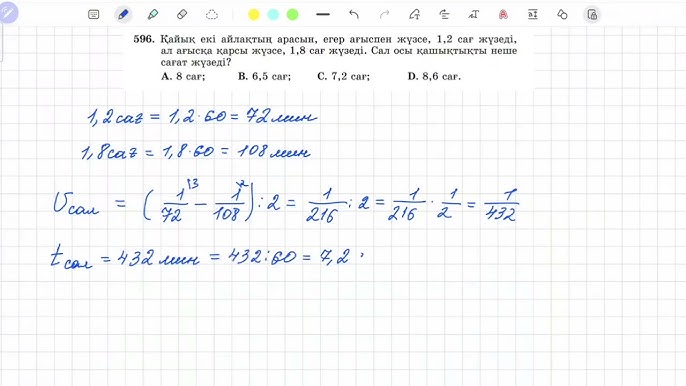 596. Қайық екі айлақтың арасын, егер ағыспен жүзсе, 1,2 сағ жүзеді,
ал ағысқа қарсы жүзсе, 1,8 сағ жүзеді. Сал осы қашықтықты неше
сағат жүзеді?
A. 8 сағ; B. 6,5 сағ; C. 7,2 сағ; D. 8,6 сағ.
1,2 сағ = 1,2·60 = 72 мин
1,8 сағ = 1,8·60 = 108 мин
υсал = (1/72 \3 − 1/108 \2) : 2 = 1/216 : 2 = 1/216 · 1/2 = 1/432
tсал = 432 мин = 432:60 = 7,2